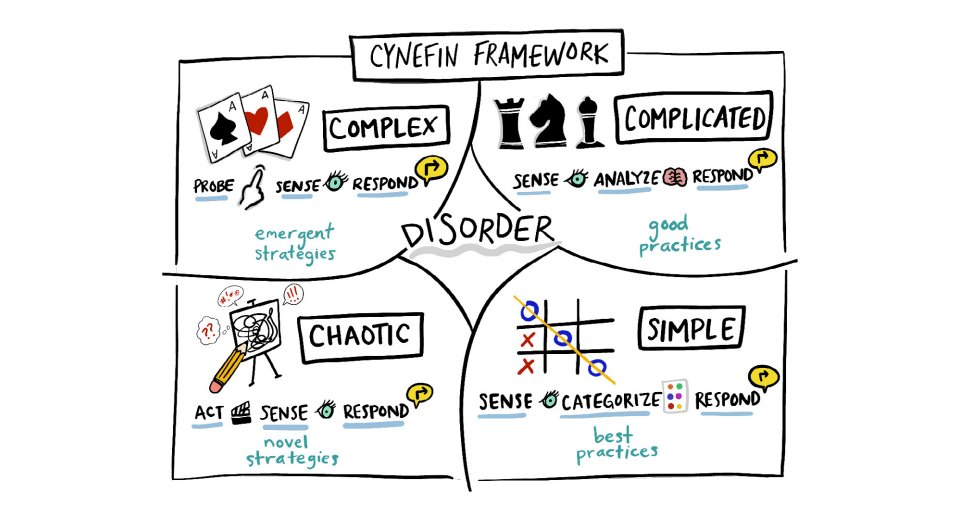 CYNEFIN FRAMEWORK
A A A
A A
COMPLEX
PROBE SENSE RESPOND
emergent
strategies
COMPLICATED
SENSE ANALYZE RESPOND
good
practices
DISORDER
#!*@
!!!
??
CHAOTIC
ACT SENSE RESPOND
novel
strategies
O
X O
X O
SIMPLE
SENSE CATEGORIZE RESPOND
best
practices